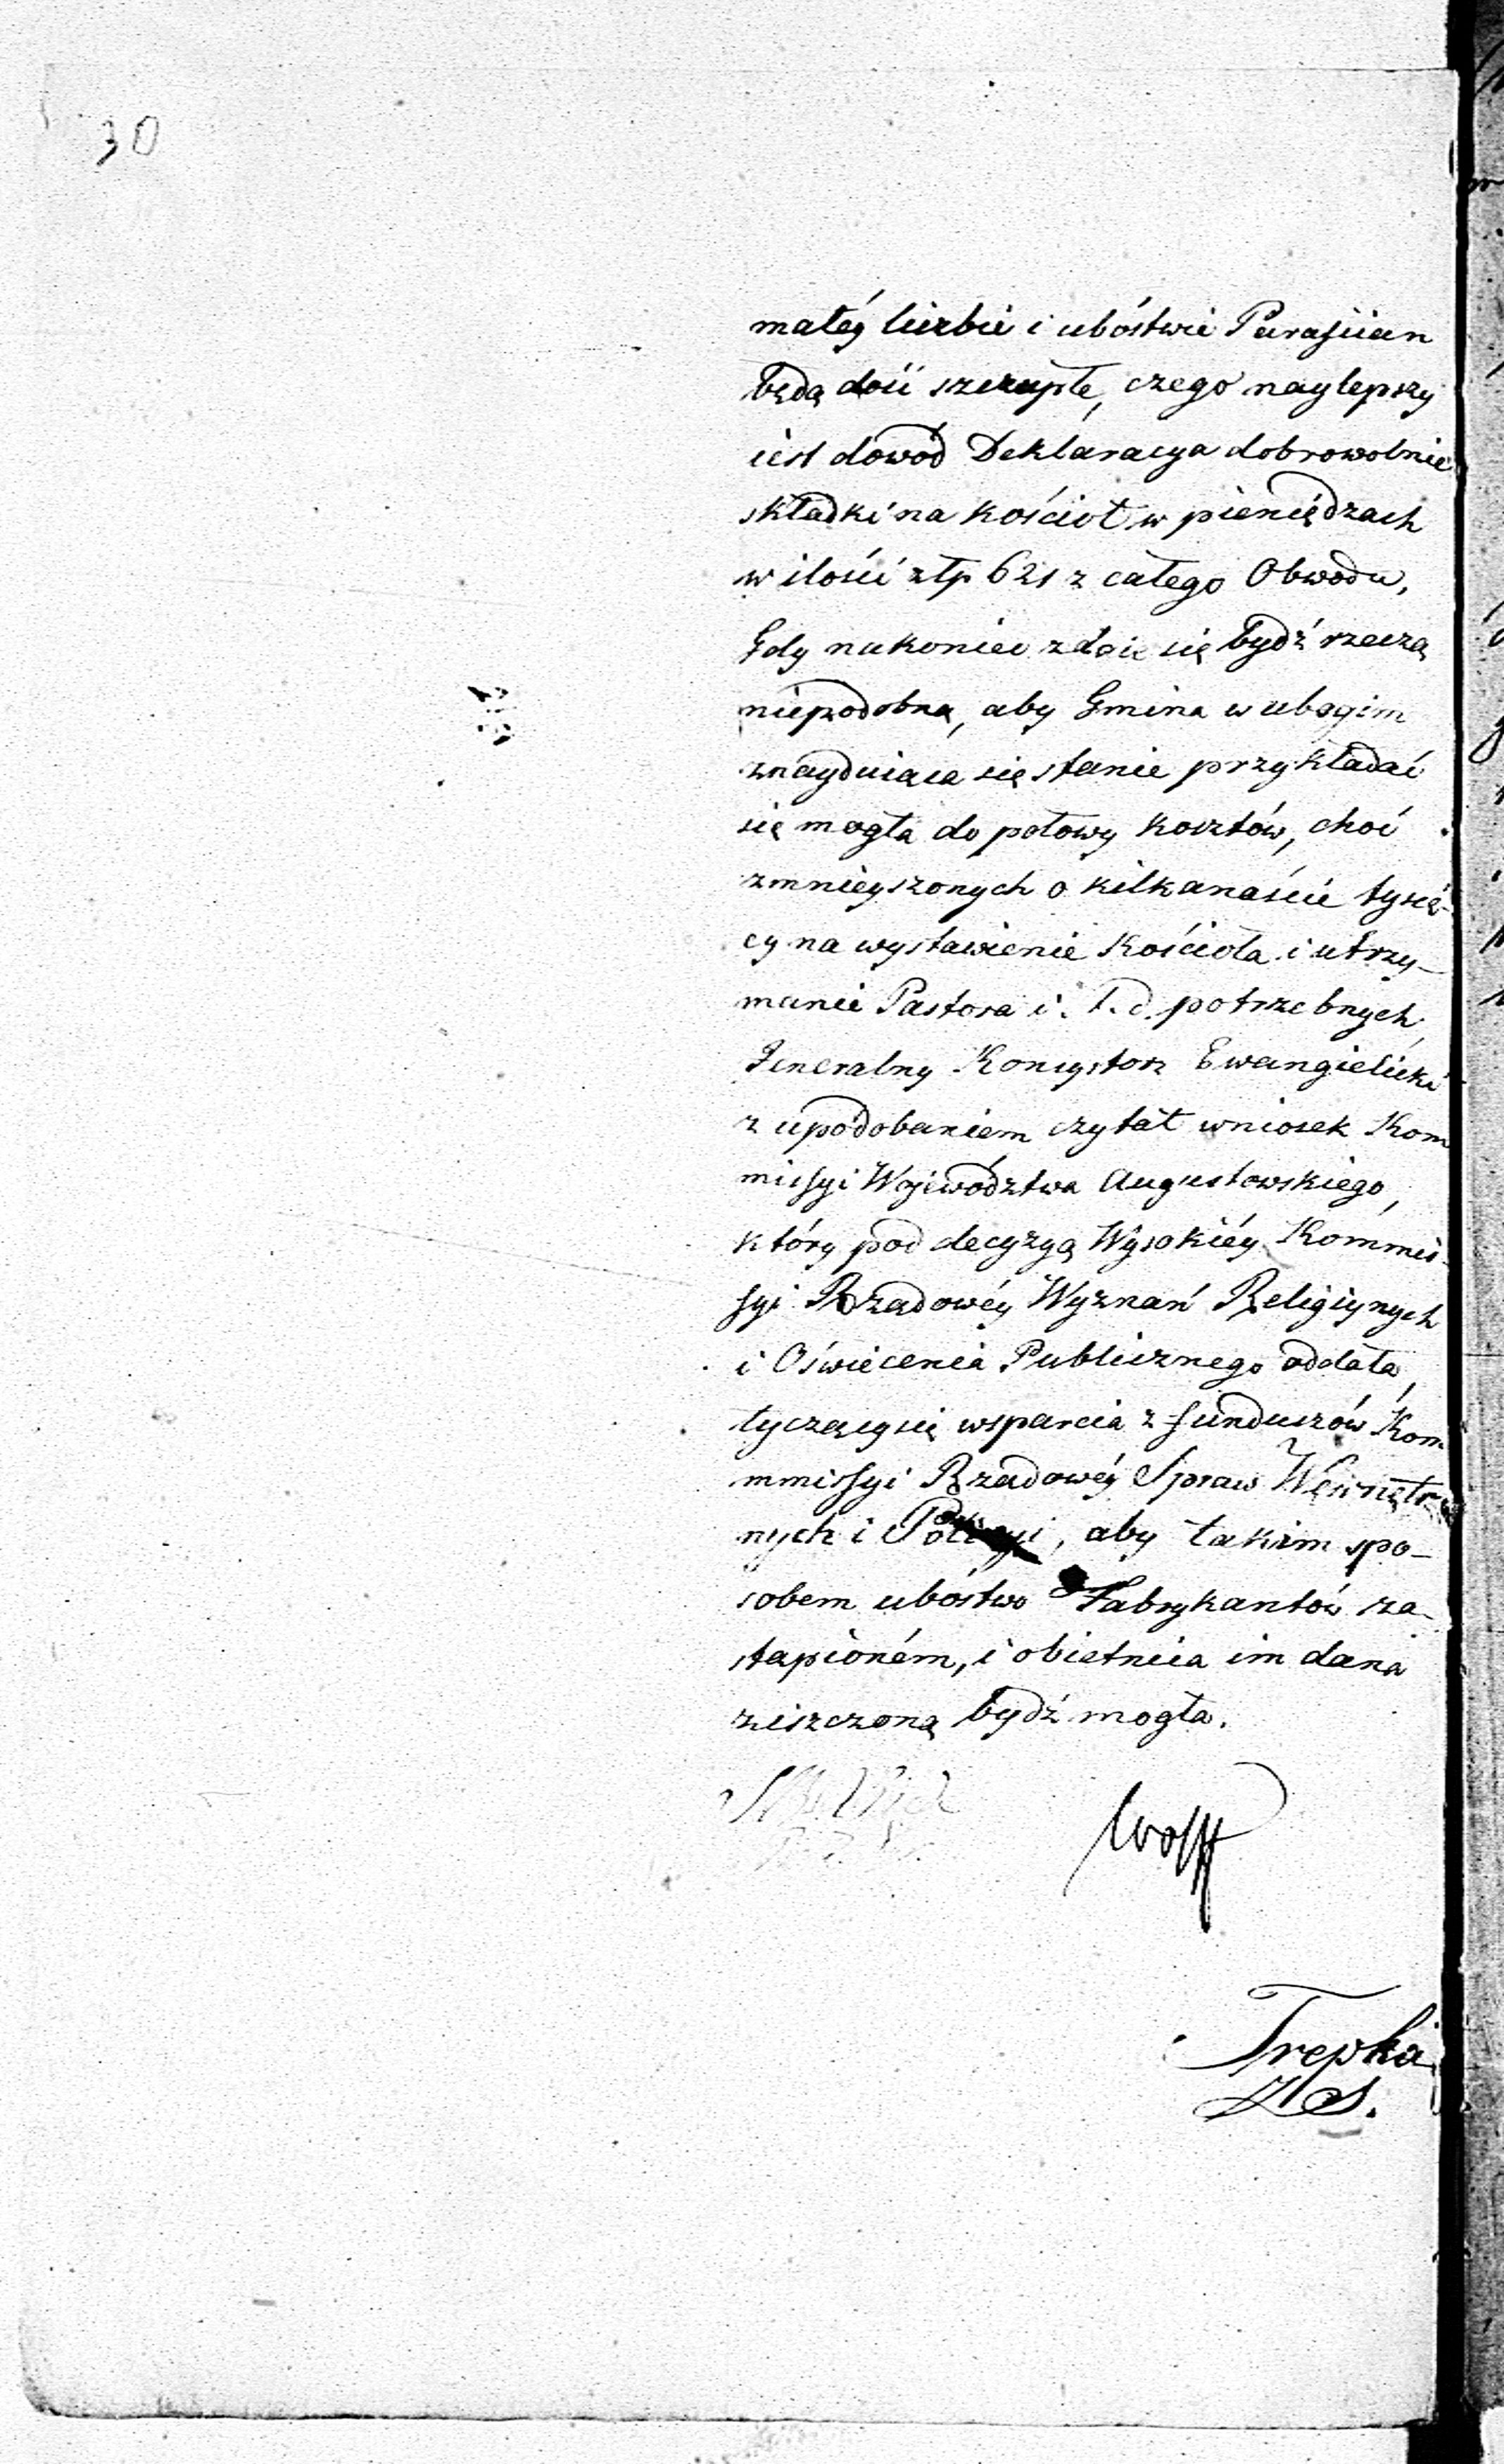 30
małéy liczbie i ubóstwie Parafiian
będą dość szczupłe, czego naylepszy
iest dowód Deklaracya dobrowolnie
składki na kościoł w pieniędzach
w ilości złp 621 z całego Obwodu,
Gdy nakoniec zdaie się bydź rzeczą
niepodobną, aby Gmina w ubogim
znayduiąca się stanie przykładać
się mogła do połowy kosztów, choć
zmnieyszonych o kilkanaście tysię-
cy na wystawienie Kościoła i utrzy-
manie Pastora i. t. d. potrzebnych,
Jeneralny Konsystorz Ewangielicki
z upodobaniem czytał wniosek Kom
missyi Województwa Augustowskiego,
który pod decyzyą Wysokiéy Kommis-
syi Rządowéy Wyznań Religiynych
i Oświecenia Publicznego oddała,
tyczący się wsparcia z funduszów Kom-
mmissyi Rządowéy Spraw Wewnętrz
nych i Policyi, aby takim spo-
sobem ubóstwo Fabrykantów za-
stąpioném, i obietnica im dana
ziszczoną bydź mogła.
Wolff
Trepka
Z S.